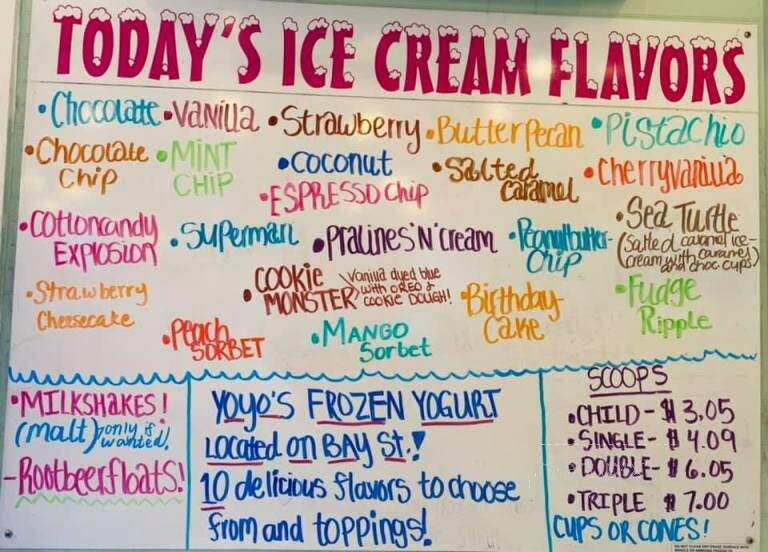 TODAY'S ICE CREAM FLAVORS
•Chocolate •Vanilla •Strawberry •Butter Pecan •Pistachio
•Chocolate Chip •MINT CHIP •coconut •Salted Caramel •Cherryvanilla
•ESPRESSO Chip
•Cottoncandy EXPLOSION •Superman •PRALINES'N'Cream •Peanutbutter-Chip •Sea Turtle
(Salted caramel ice-
cream with caramel
and choc cups)
•Strawberry Cheesecake •COOKIE MONSTER (vanilla dyed blue
with OREO &
COOKIE DOUGH!
•Birthday Cake •Fudge Ripple
•Peach SORBET •MANGO Sorbet
•MILKSHAKES!
(malt) only if
wanted!
-Rootbeerfloats!
YOYO'S FROZEN YOGURT
Located on BAY St.!
10 delicious flavors to choose
from and toppings!
SCOOPS
•CHILD - $3.05
•SINGLE - $4.09
•DOUBLE - $6.05
•TRIPLE $7.00
CUPS OR CONES!